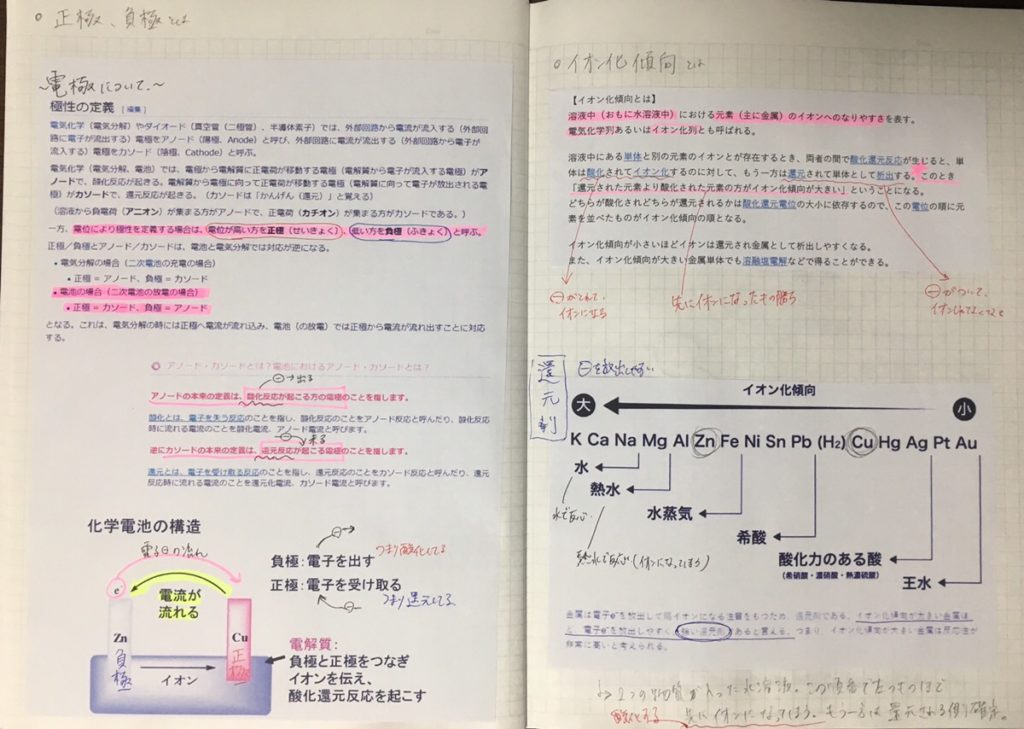 ○ 正極、負極とは
〜電極について.〜
極性の定義 [編集]
電気化学(電気分解)やダイオード(真空管(二極管)、半導体素子)では、外部回路から電流が流入する(外部回
路に電子が流出する)電極をアノード(陽極、Anode)と呼び、外部回路に電流が流出する(外部回路から電子が
流入する)電極をカソード(陰極、Cathode)と呼ぶ。
電気化学(電気分解、電池)では、電極から電解質に正電荷が移動する電極(電解質から電子が流入する電極)がア
ノードで、酸化反応が起きる。電解質から電極に向って正電荷が移動する電極(電解質に向って電子が放出される電
極)がカソードで、還元反応が起きる。(カソードは「かんげん(還元)」と覚える)
(溶液から負電荷(アニオン)が集まる方がアノードで、正電荷(カチオン)が集まる方がカソードである。)
一方、電位により極性を定義する場合は、電位が高い方を正極(せいきょく)、低い方を負極(ふきょく)と呼ぶ。
正極/負極とアノード/カソードは、電池と電気分解では対応が逆になる。
• 電気分解の場合(二次電池の充電の場合)
• 正極 = アノード、負極 = カソード
• 電池の場合(二次電池の放電の場合)
• 正極 = カソード、負極 = アノード
となる。これは、電気分解の時には正極へ電流が流れ込み、電池(の放電)では正極から電流が流れ出すことに対応
する。
アノード・カソードとは?電池におけるアノード・カソードとは?
⊖→出る
アノードの本来の定義は、酸化反応が起こる方の電極のことを指します。
酸化とは、電子を失う反応のことを指し、酸化反応のことをアノード反応と呼んだり、酸化反応
時に流れる電流のことを酸化電流、アノード電流と呼びます。
⊖→来る
逆にカソードの本来の定義は、還元反応が起こる電極のことを指します。
還元とは、電子を受け取る反応のことを指し、還元反応のことをカソード反応と呼んだり、還元
反応時に流れる電流のことを還元化電流、カソード電流と呼びます。
化学電池の構造
電子の流れ
e⁻
電流が
流れる
Zn
負極
Cu
正極
イオン
⊖→
負極:電子を出す つまり酸化してる
正極:電子を受け取る
⊖ つまり還元してる
電解質:
負極と正極をつなぎ
イオンを伝え、
酸化還元反応を起こす
○ イオン化傾向とは
【イオン化傾向とは】
溶液中(おもに水溶液中)における元素(主に金属)のイオンへのなりやすさを表す。
電気化学列あるいはイオン化列とも呼ばれる。
溶液中にある単体と別の元素のイオンとが存在するとき、両者の間で酸化還元反応が生じると、単
体は酸化されてイオン化するのに対して、もう一方は還元されて単体として析出する。このとき
「還元された元素より酸化された元素の方がイオン化傾向が大きい」ということになる。
どちらが酸化されどちらが還元されるかは酸化還元電位の大小に依存するので、この電位の順に元
素を並べたものがイオン化傾向の順となる。
イオン化傾向が小さいほどイオンは還元され金属として析出しやすくなる。
また、イオン化傾向が大きい金属単体でも溶融塩電解などで得ることができる。
⊖がとれて、
イオンになる
先にイオンになったもの勝ち
⊖がついて、
還元剤
⊖を放出しやすい
イオン化傾向
大 小
K Ca Na Mg Al Zn Fe Ni Sn Pb (H₂) Cu Hg Ag Pt Au
水
熱水
水蒸気
希酸
酸化力のある酸
(希硝酸・濃硝酸・熱濃硫酸)
王水
水で反応
熱水で反応(イオンになってしまう)
金属は電子e⁻を放出して陽イオンになる性質をもつため、還元剤である。イオン化傾向が大きい金属ほ
ど、電子e⁻を放出しやすく、強い還元剤であると言える。つまり、イオン化傾向が大きい金属は反応性が
非常に高いと考えられる。
2つの物質が入った水溶液。この順番で左のものほど
酸化する 先にイオンになってしまう。もう一方は還元される側り確定。